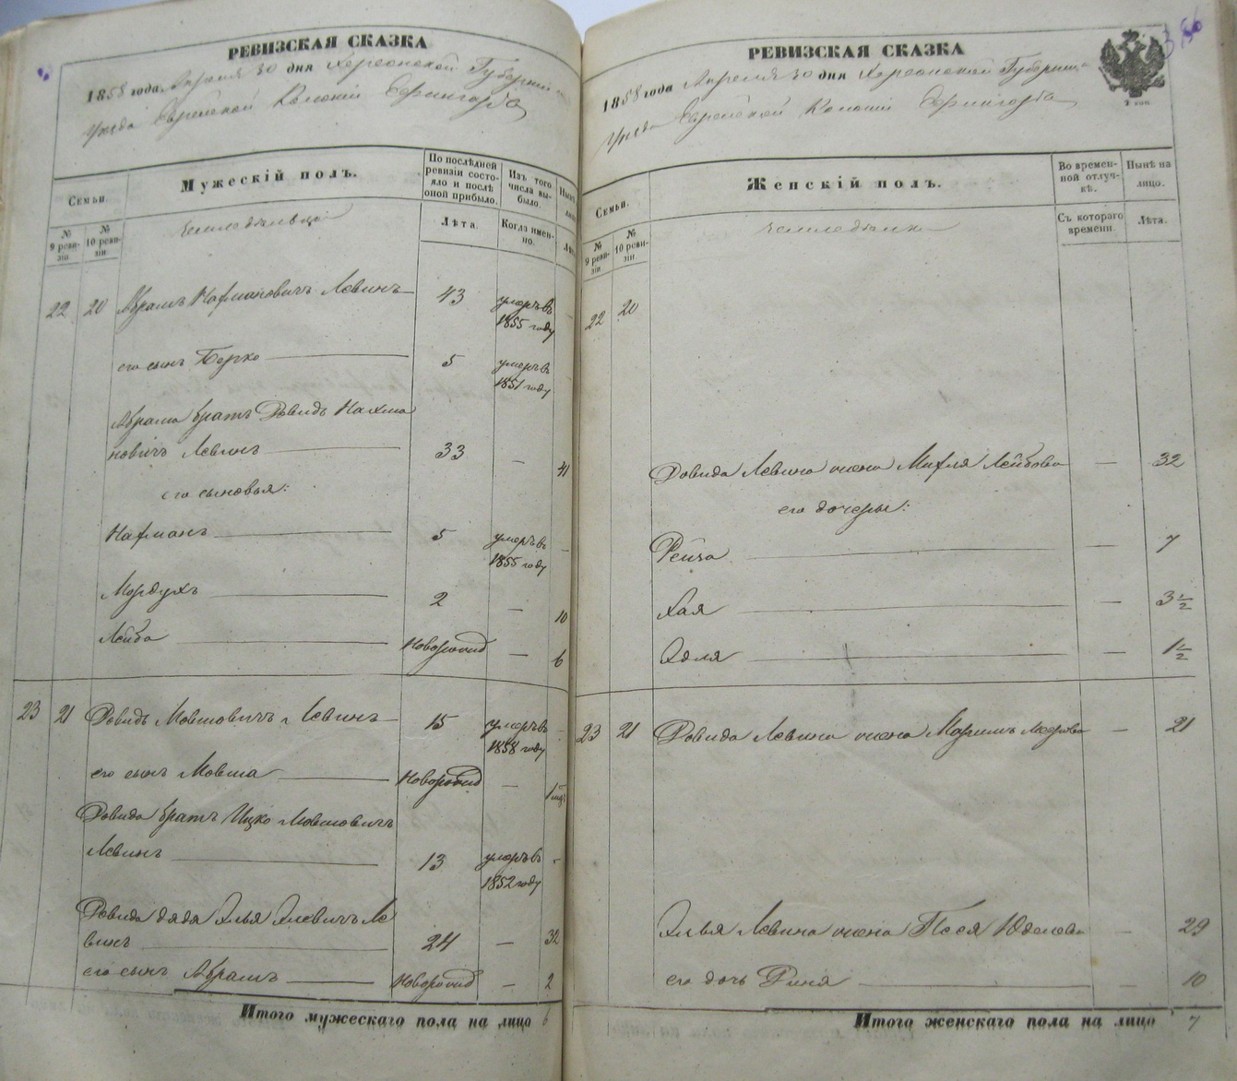 РЕВИЗСКАЯ СКАЗКА
1858 года Апреля 30 дня Херсонской Губернии
Уезда Еврейской Колонии Ефингарба
Семьи.
№ 9 ревизіи
№ 10 ревизіи
Мужескій полъ.
По послѣдней ревизіи состояло и послѣ оной прибыло.
Изъ того числа выбыло.
Лѣта.
Когда именно.
Земледельцы
22 20 Абрамъ Нафманович Левинъ 43 умеръ въ 1855 году
его сынъ Берко 5 умеръ въ 1851 году
Абрама братъ Довидъ Нахма
новичъ Левинъ 33 — 41
его сыновья:
Нафманъ 5 умеръ въ 1855 году —
Мордухъ 2 — 10
Лейба Новорожд — 6
23 21 Довидъ Мовшовичъ Левинъ 15 умеръ въ 1858 году —
его сынъ Мовша Новорожд —
Довида братъ Ицко Мовшовичъ
Левинъ 13 умеръ въ 1852 году -
Довида дядя Элья Элевичъ Ле
винъ 24 — 32
его сынъ Абрамъ Новорожд — 2
Итого мужескаго пола на лицо 6
РЕВИЗСКАЯ СКАЗКА
1858 года Апреля 30 дня Херсонской Губерніи
Уезда Еврейской Колоніи Ефингарба
Семьи.
№ 9 ревизіи
№ 10 ревизіи
Женскій полъ.
Во временной отлучкѣ.
Нынѣ на лицо.
Съ котораго времени.
Лѣта.
22 20
Довида Левина жена Михля Лейбова — 32
его дочери:
Рейза — 7
Хая — 3½
Эдля — 1½
23 21 Довида Левина жена Маримъ — 21
Элья Левина жена Песя Юделева 29
его дочь Риня 10
Итого женскаго пола на лицо 7